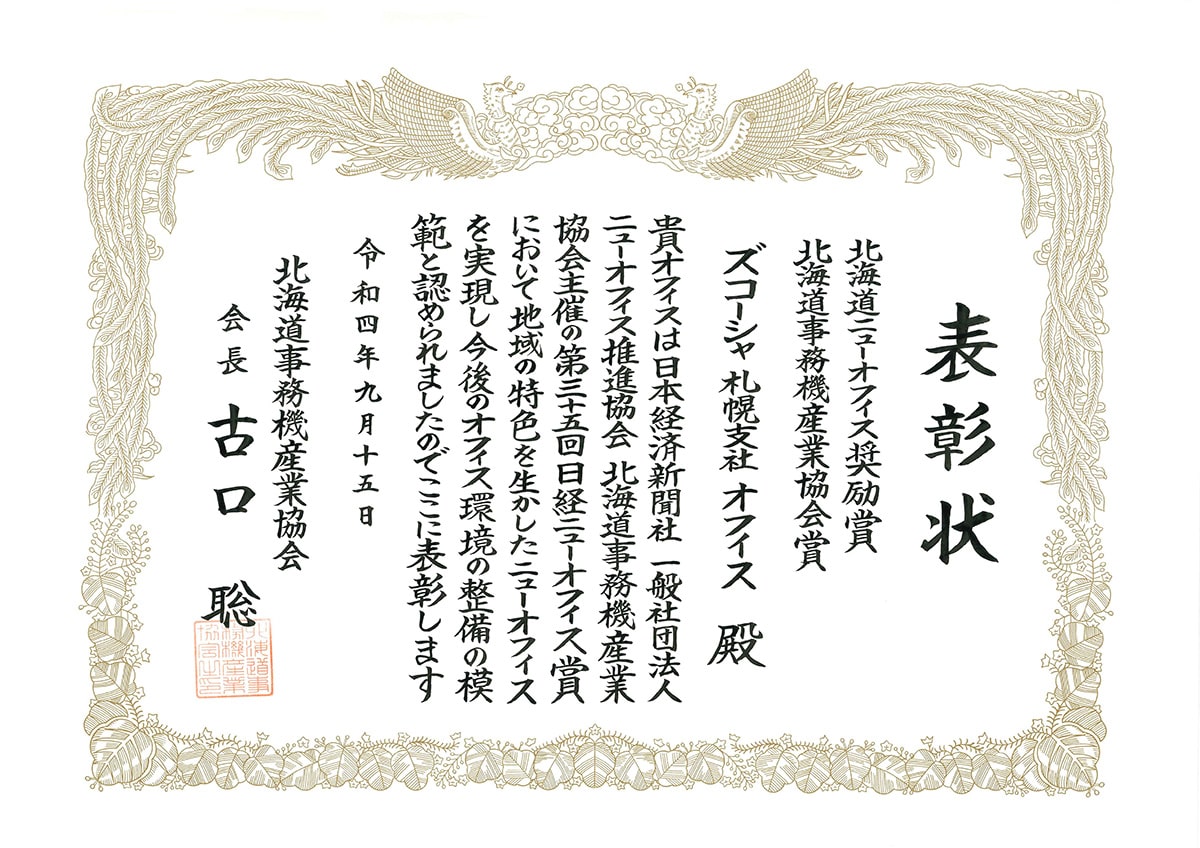 表彰状
北海道ニューオフィス奨励賞
北海道事務機産業協会賞
ズコーシャ 札幌支社 オフィス 殿
貴オフィスは日本経済新聞社 一般社団法人
ニューオフィス推進協会 北海道事務機産業
協会主催の第三十五回日経ニューオフィス賞
において地域の特色を生かしたニューオフィス
を実現し今後のオフィス環境の整備の模
範と認められましたのでここに表彰します
令和四年九月十五日
北海道事務機産業協会
会長 古口 聡
北海道事
務機産業
協会之印